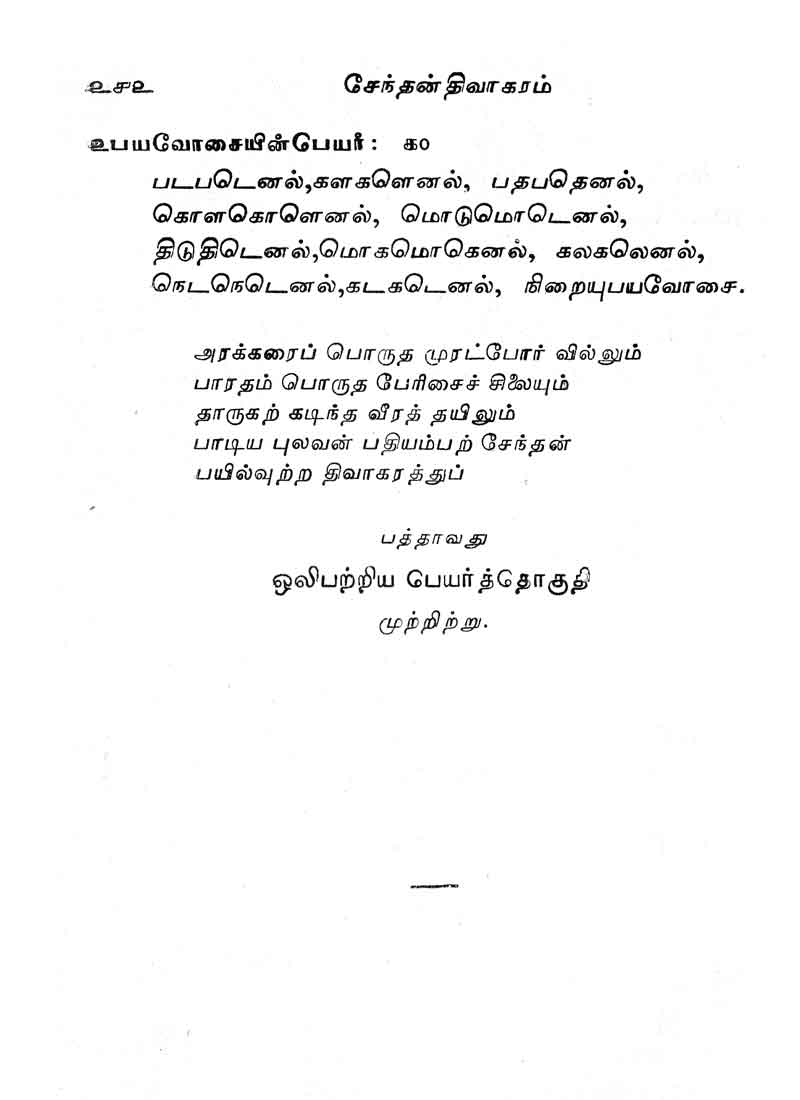 ௨௮௨ சேந்தன் திவாகரம்
உபயவோசையின்பெயர் : ௧௦
படபடெனல்,களகளெனல், பதபதெனல்,
கொளகொளெனல், மொடுமொடெனல்,
திடுதிடெனல்,மொகமொகெனல், கலகலெனல்,
நெடநெடெனல்,கடகடெனல், நிறையுபயவோசை.
அரக்கரைப் பொருத முரட்போர் வில்லும்
பாரதம் பொருத பேரிசைச் சிலையும்
தாருகற் கடிந்த வீரத் தயிலும்
பாடிய புலவன் பதியம்பற் சேந்தன்
பயில்வுற்ற திவாகரத்துப்
பத்தாவது
ஒலிபற்றிய பெயர்த்தொகுதி
முற்றிற்று.